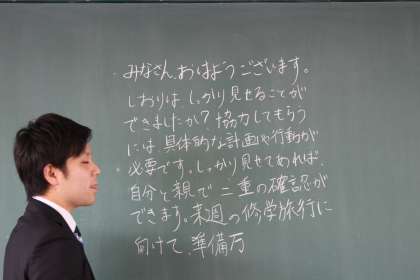 ・みなさん、おはようございます。
しおりは、しっかり見せることが
できましたか？協力してもらう
には、具体的な計画や行動が
・必要です。しっかり見せてあれば、
自分と親で二重の確認が
できます。来週の修学旅行に
向けて、準備万